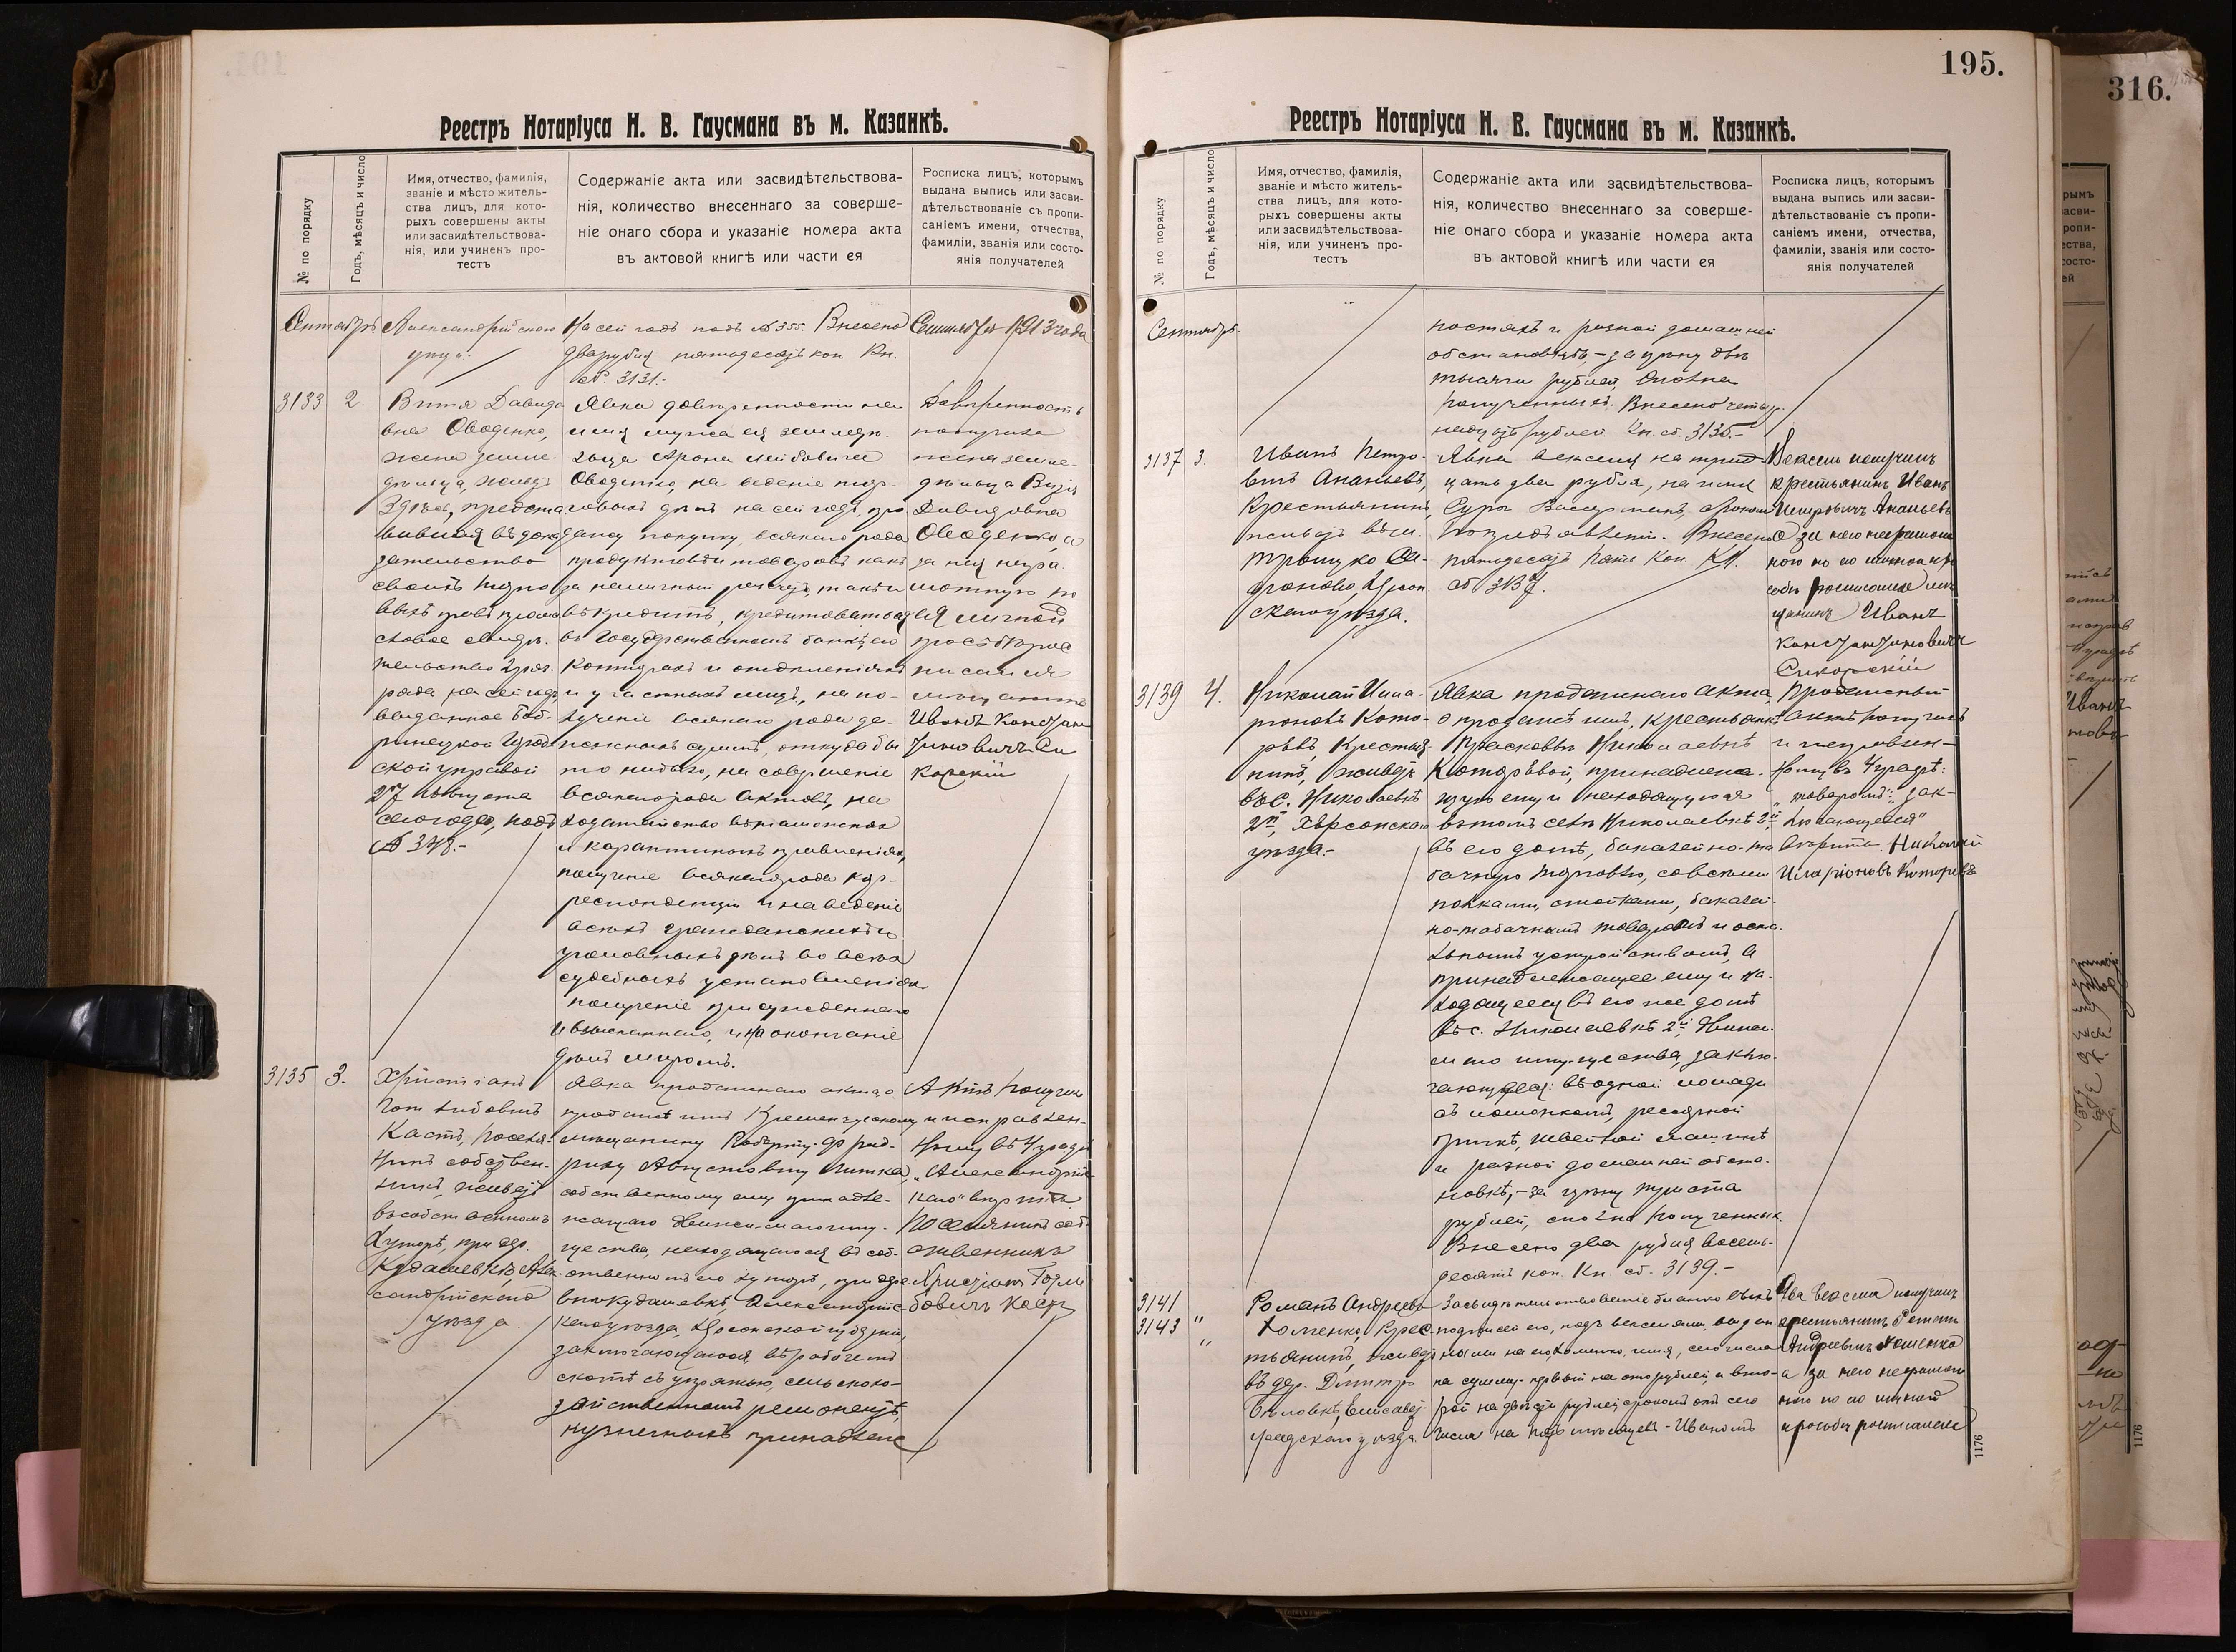 195.
316.
Реестръ Нотаріуса Н. В. Гаусмана въ м. Казанкѣ.
№ по порядку
Годъ, мѣсяцъ и число
Имя, отчество, фамилія,
званіе и мѣсто житель-
ства лицъ, для кото-
рыхъ совершены акты
или засвидѣтельствова-
нія, или учиненъ про-
тестъ
Содержаніе акта или засвидѣтельствова-
нія, количество внесеннаго за соверше-
ніе онаго сбора и указаніе номера акта
въ актовой книгѣ или части ея
Росписка лицъ, которымъ
выдана выпись или засви-
дѣтельствованіе съ пропи-
саніемъ имени, отчества,
фамиліи, званія или состо-
янія получателей
Сентябрь
На сей годъ подъ № 355. Внесено
два рубля пятьдесятъ коп. Кн.
сб. 3131.-
Сентября 1913 года
3133 2.
Давидо
вна Оводенко,
жена земле-
дѣльца, живущ.
вившая въ дока
зательство
рода на сей годъ,
выданное Боб-
ринецкой Город
ской управой
сего года, подъ
№ 348.-
Явка довѣренности на
имя мужа ея земледѣ-
льца Арона Лейбовича
Оводенко, на веденіе тор-
говыхъ дѣлъ на сей годъ, про
дажу покупку, всякаго рода
продуктовъ и товаровъ какъ
за наличный разсчетъ, такъ и
въ кредитъ, кредитоваться
въ Государственномъ банкѣ, его
Конторахъ и отдѣленіяхъ
и у частныхъ лицъ, на по-
лученіе всякаго рода де-
нежныхъ суммъ, откуда бы
то ни было, на совершеніе
всякаго рода актовъ, на
ходатайство въ таможняхъ
и карантинныхъ правленіяхъ,
полученіе всякаго рода кор-
респонденціи и на веденіе
всѣхъ гражданскихъ и
уголовныхъ дѣлъ во всѣхъ
судебныхъ установленіяхъ
полученіе присужденнаго
и взысканнаго, и на окончаніе
дѣлъ миромъ.
Довѣренность
получила
жена земле-
дѣльца
Давидовна
Оводенко, а
за нея негра-
мотную по
ея личной
просьбѣ рос
писался
мѣщанинъ
Иванъ Констан
тиновичъ Си
корскій
3135 3.
Христіанъ
Готлибовичъ
Кастъ, поселя-
нинъ собствен-
никъ, живущ.
въ собственномъ
хуторѣ, при дер.
Кудашевкѣ, Алек-
сандрійскаго
уѣзда.
Явка продажнаго акта о
продажѣ имъ Кременчугскому
мѣщанину Роберту-Фрид-
риху Августовичу
собственному ему принадле-
жащаго движимаго иму-
щества, находящагося въ соб-
ственномъ его хуторѣ, при дере-
внѣ Кудашевкѣ, Александрійс-
каго уѣзда, Херсонской губерніи,
заключающагося въ рабочемъ
скотѣ съ упряжью, сельскохо-
зяйственномъ реманентѣ,
кузнечныхъ принадлеж
Актъ получилъ
и исправлен-
ному въ 4 градѣ
„Александрійс-
каго" вѣрить.
Поселянинъ соб-
ственникъ
Христіанъ Готли
бовичъ Кастъ
Реестръ Нотаріуса Н. В. Гаусмана въ м. Казанкѣ.
№ по порядку
Годъ, мѣсяцъ и число
Имя, отчество, фамилія,
званіе и мѣсто житель-
ства лицъ, для кото-
рыхъ совершены акты
или засвидѣтельствова-
нія, или учиненъ про-
тестъ
Содержаніе акта или засвидѣтельствова-
нія, количество внесеннаго за соверше-
ніе онаго сбора и указаніе номера акта
въ актовой книгѣ или части ея
Росписка лицъ, которымъ
выдана выпись или засви-
дѣтельствованіе съ пропи-
саніемъ имени, отчества,
фамиліи, званія или состо-
янія получателей
Сентябрь
ностяхъ и разной домашней
обстановкѣ,- за цѣну двѣ
тысячи рублей, сполна
полученныхъ. Внесено четыр-
надцать рублей. Кн. сб. 3135.-
3137 3.
Иванъ Петро-
вичъ Ананьевъ,
Крестьянинъ,
живущ. въ м.
Троицко-Са-
фоново, Херсон
скаго уѣзда.
Явка векселя на трид-
цать два рубля, на имя
Суры Вассерманъ, срокомъ
по предъявленіи. Внесено
пятьдесятъ пять коп. Кн.
сб. 3137.
Вексель получилъ
крестьянинъ Иванъ
Петровичъ Ананьевъ
а за него неграмот
наго по его личной пр
осьбѣ росписался мѣ
щанинъ Иванъ
Константиновичъ
Сикорскій
3139 4.
Николай Ила-
ріоновъ Кото-
ревъ, Крестья-
нинъ, живущ.
въ с. Николаевкѣ
2й, Херсонскаго
уѣзда.-
Явка продажнаго акта,
о продажѣ имъ, крестьянкѣ
Прасковьѣ Николаевнѣ
Которевой, принадлежа-
щую ему и находящуюся
въ томъ селѣ Николаевкѣ 2й,
въ его домѣ, бакалейно-та
бачную торговлю, со всѣми
полками, стойками, бакалей-
но-табачнымъ товаромъ и осталь-
нымъ устройствомъ, а
принадлежащее ему и на-
ходящееся въ его же домѣ
въ с. Николаевкѣ 2й движи-
маго имущества, заклю-
чающееся: въ одной лошади
съ лошонкомъ, рессорной
бричкѣ, швейной машинѣ
и разной домашней обста-
новкѣ,- за цѣну триста
рублей, сполна полученныхъ.
Внесено два рубля восемь-
десятъ коп. Кн. сб. 3139.-
Продажный
актъ получилъ
и исправлен-
ному въ 4 градѣ:
„товаромъ": „зак-
лючающееся"
вѣрить. Николай
Иларіоновъ Которевъ
3141 "
3143 "
Романъ Андреевъ
Хоменко, Крес-
тьянинъ, живущ
въ дер. Дмитро
Бѣловкѣ, Елисавет-
градскаго уѣзда.
Засвидѣтельствованіе бланковыхъ
подписей его, подъ векселями, выдан
ными на его, Хоменко, имя, сего числа
на сумму: первый на сто рублей и вто-
рой на двѣсти рублей срокомъ отъ сего
числа на мѣсяцевъ- Иваномъ
Два векселя получилъ
крестьянинъ Романъ
Андреевичъ Хоменко
а за него неграмот
наго по его личной
просьбѣ росписался
1176
1176